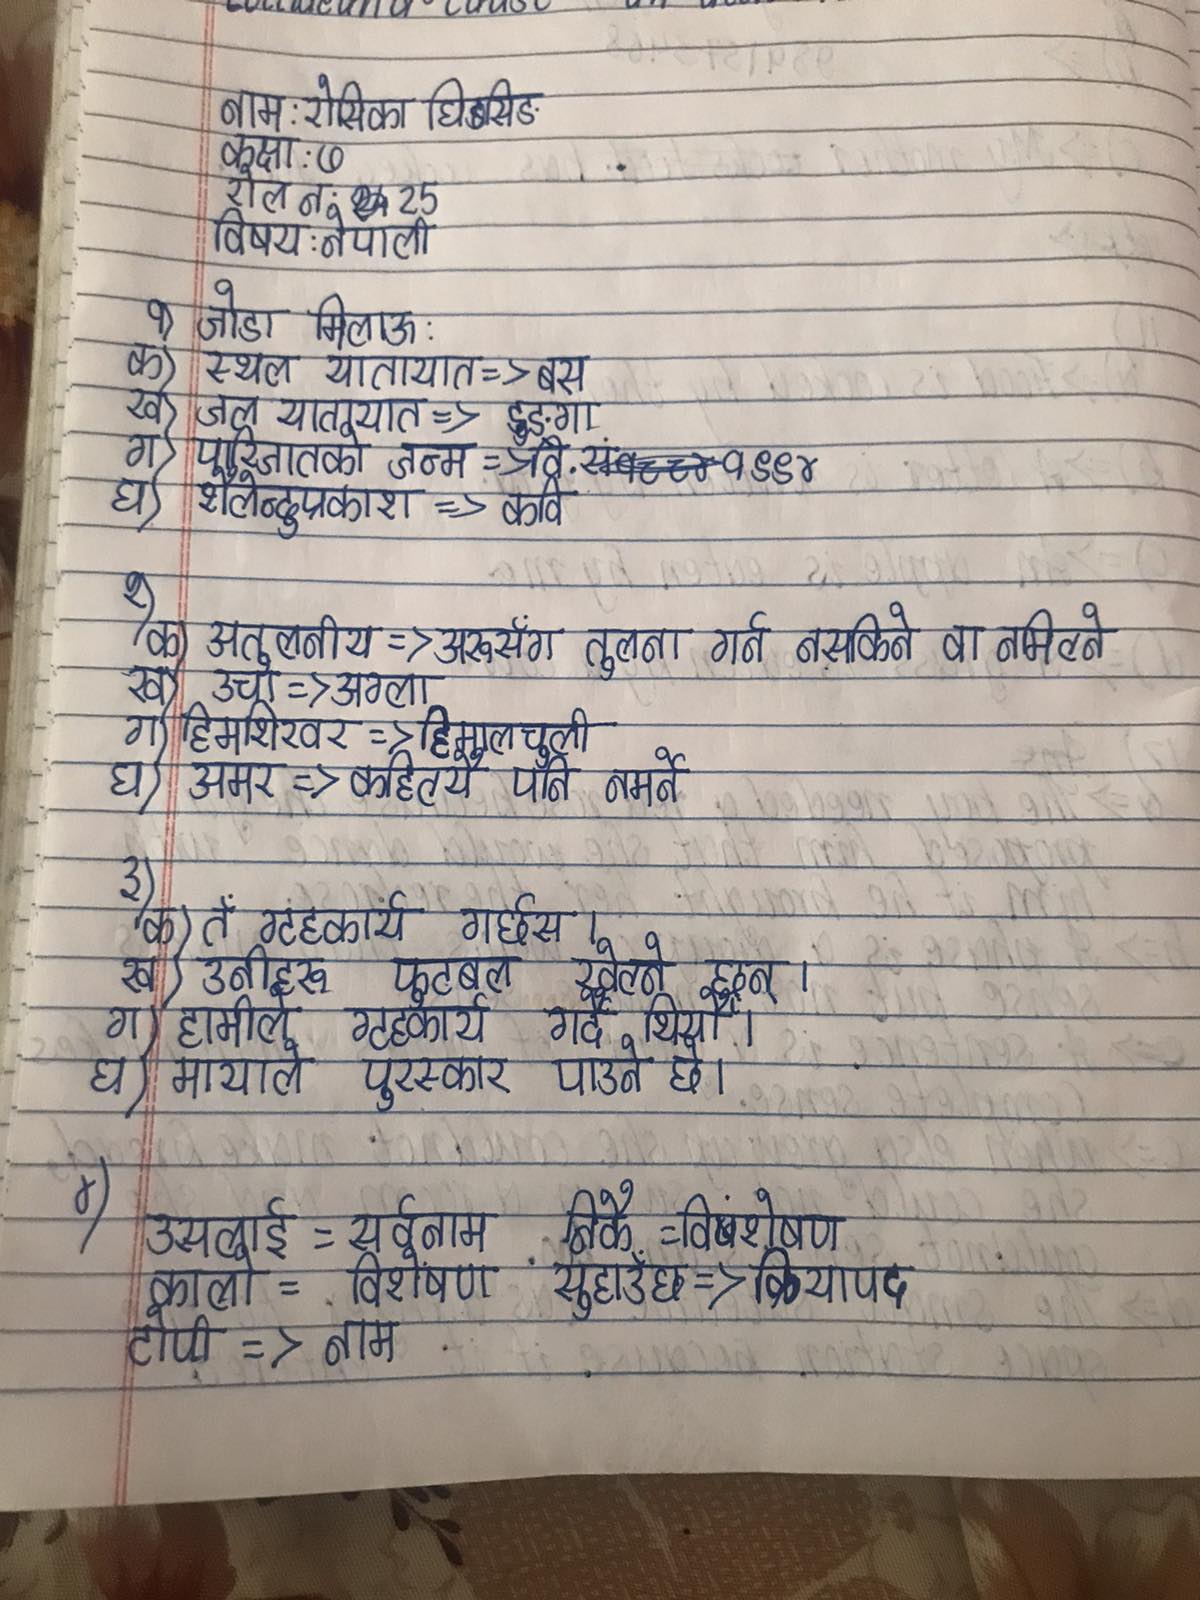 नाम: रोसिका घिसिङ
कक्षा: ७
रोल नं: 25
विषय: नेपाली
१) जोडा मिलाऊ:
क) स्थल यातायात => बस
ख) जल यातायात => डुङ्गा
ग) पारिजातको जन्म => वि.सं १९९४
घ) शैलेन्दुप्रकाश => कवि
२)
क) अतुलनीय => अरूसँग तुलना गर्न नसकिने वा नमिल्ने
ख) उचो => अग्ला
ग) हिमशिखर => हिमालचुली
घ) अमर => कहिल्यै पनि नमर्ने
३)
क) तँ गृहकार्य गर्छस ।
ख) उनीहरू फुटबल खेल्ने छन् ।
ग) हामीले गृहकार्य गर्दै थियौँ ।
घ) मायाले पुरस्कार पाउने छे।
४)
उसलाई = सर्वनाम निकै = विशेषण
कालो = विशेषण सुहाउँछ => क्रियापद
टोपी => नाम